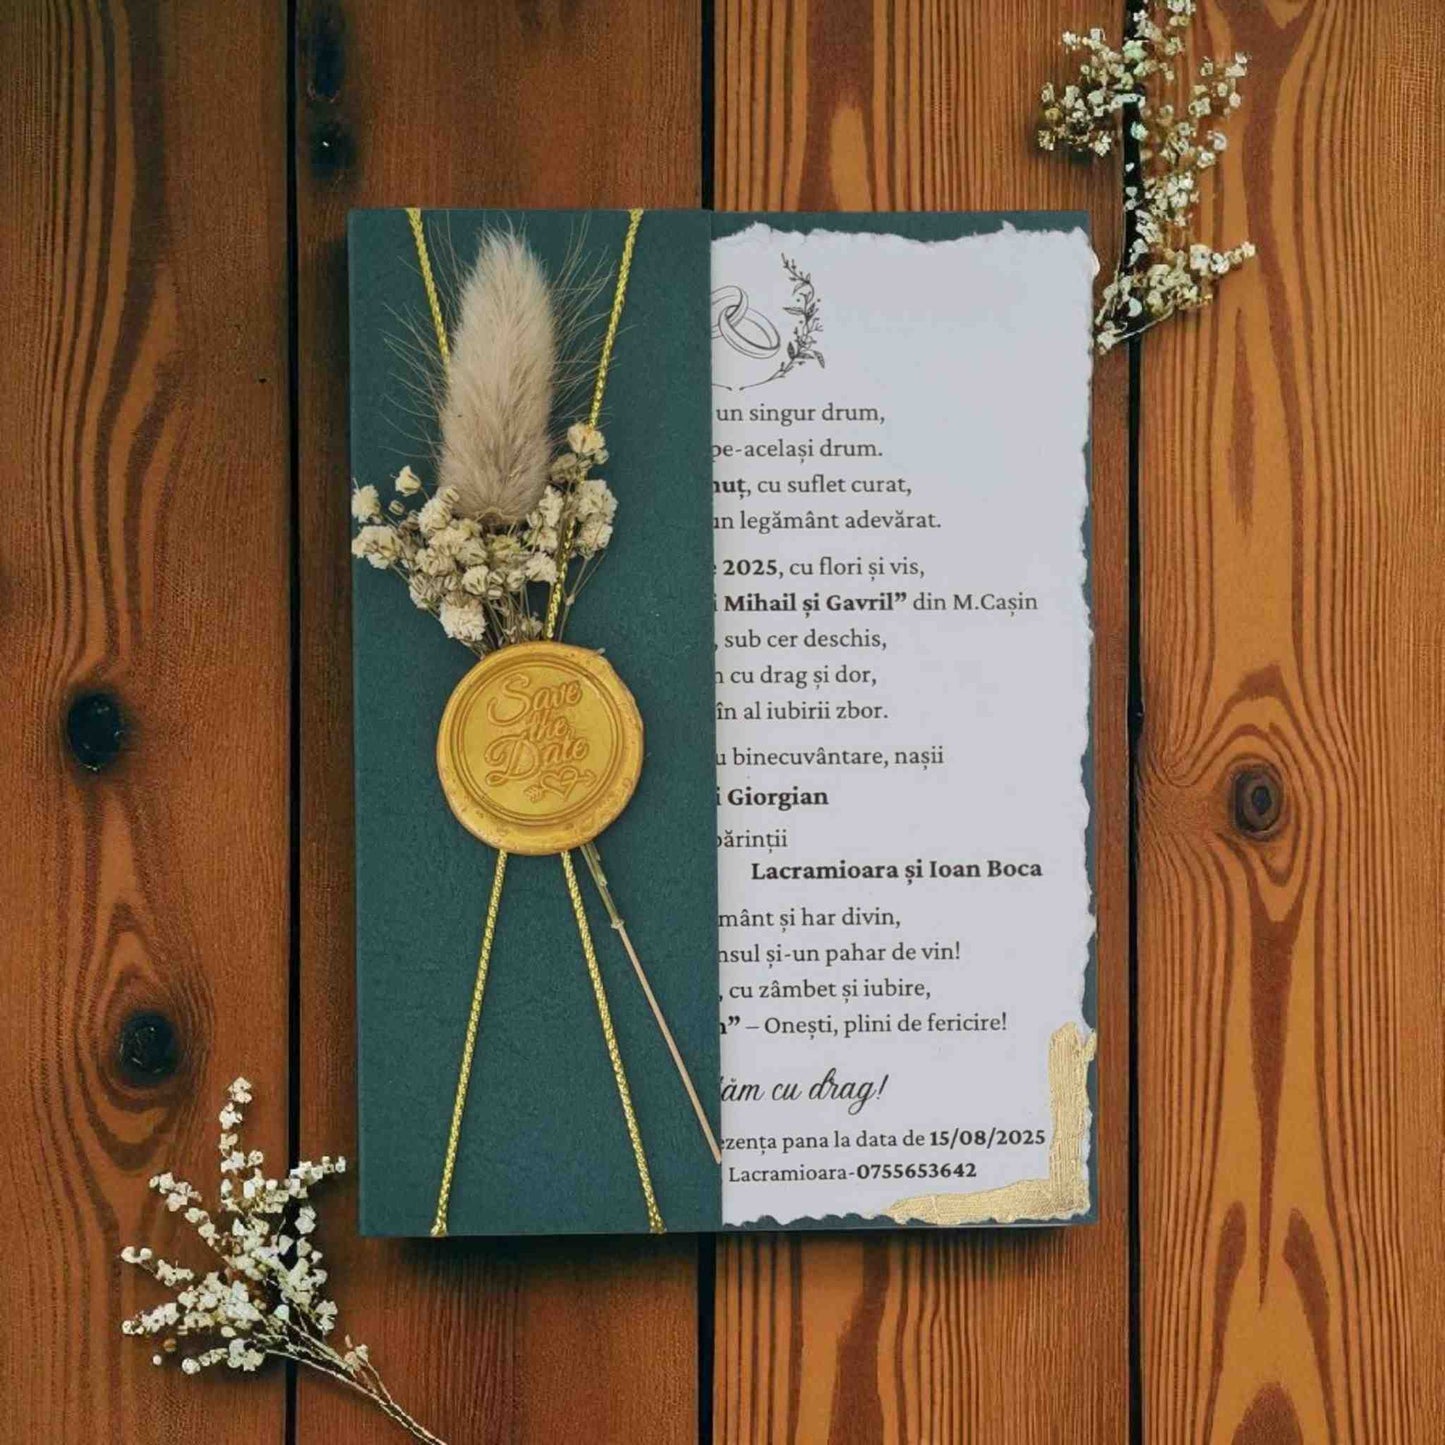 Save
the
Date
un singur drum,
pe-același drum.
cu suflet curat,
legământ adevărat.
2025, cu flori și vis,
Mihail și Gavril” din M.Cașin
, sub cer deschis,
cu drag și dor,
în al iubirii zbor.
binecuvântare, nașii
Giorgian
părinții
Lacramioara și Ioan Boca
și har divin,
și-un pahar de vin!
, cu zâmbet și iubire,
” – Onești, plini de fericire!
cu drag!
pana la data de 15/08/2025
Lacramioara-0755653642